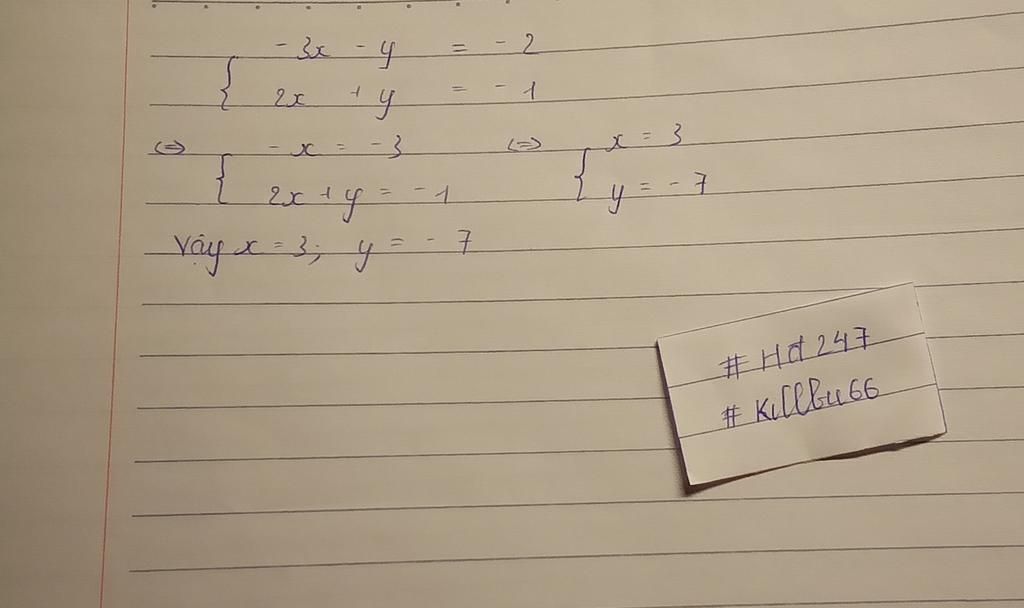 -3x - y = -2
{ 2x + y = -1
⇔ { -x = -3 ⇔ { x = 3
2x + y = -1 y = -7
Vậy x = 3; y = -7
# Hd 247
# Killbu66